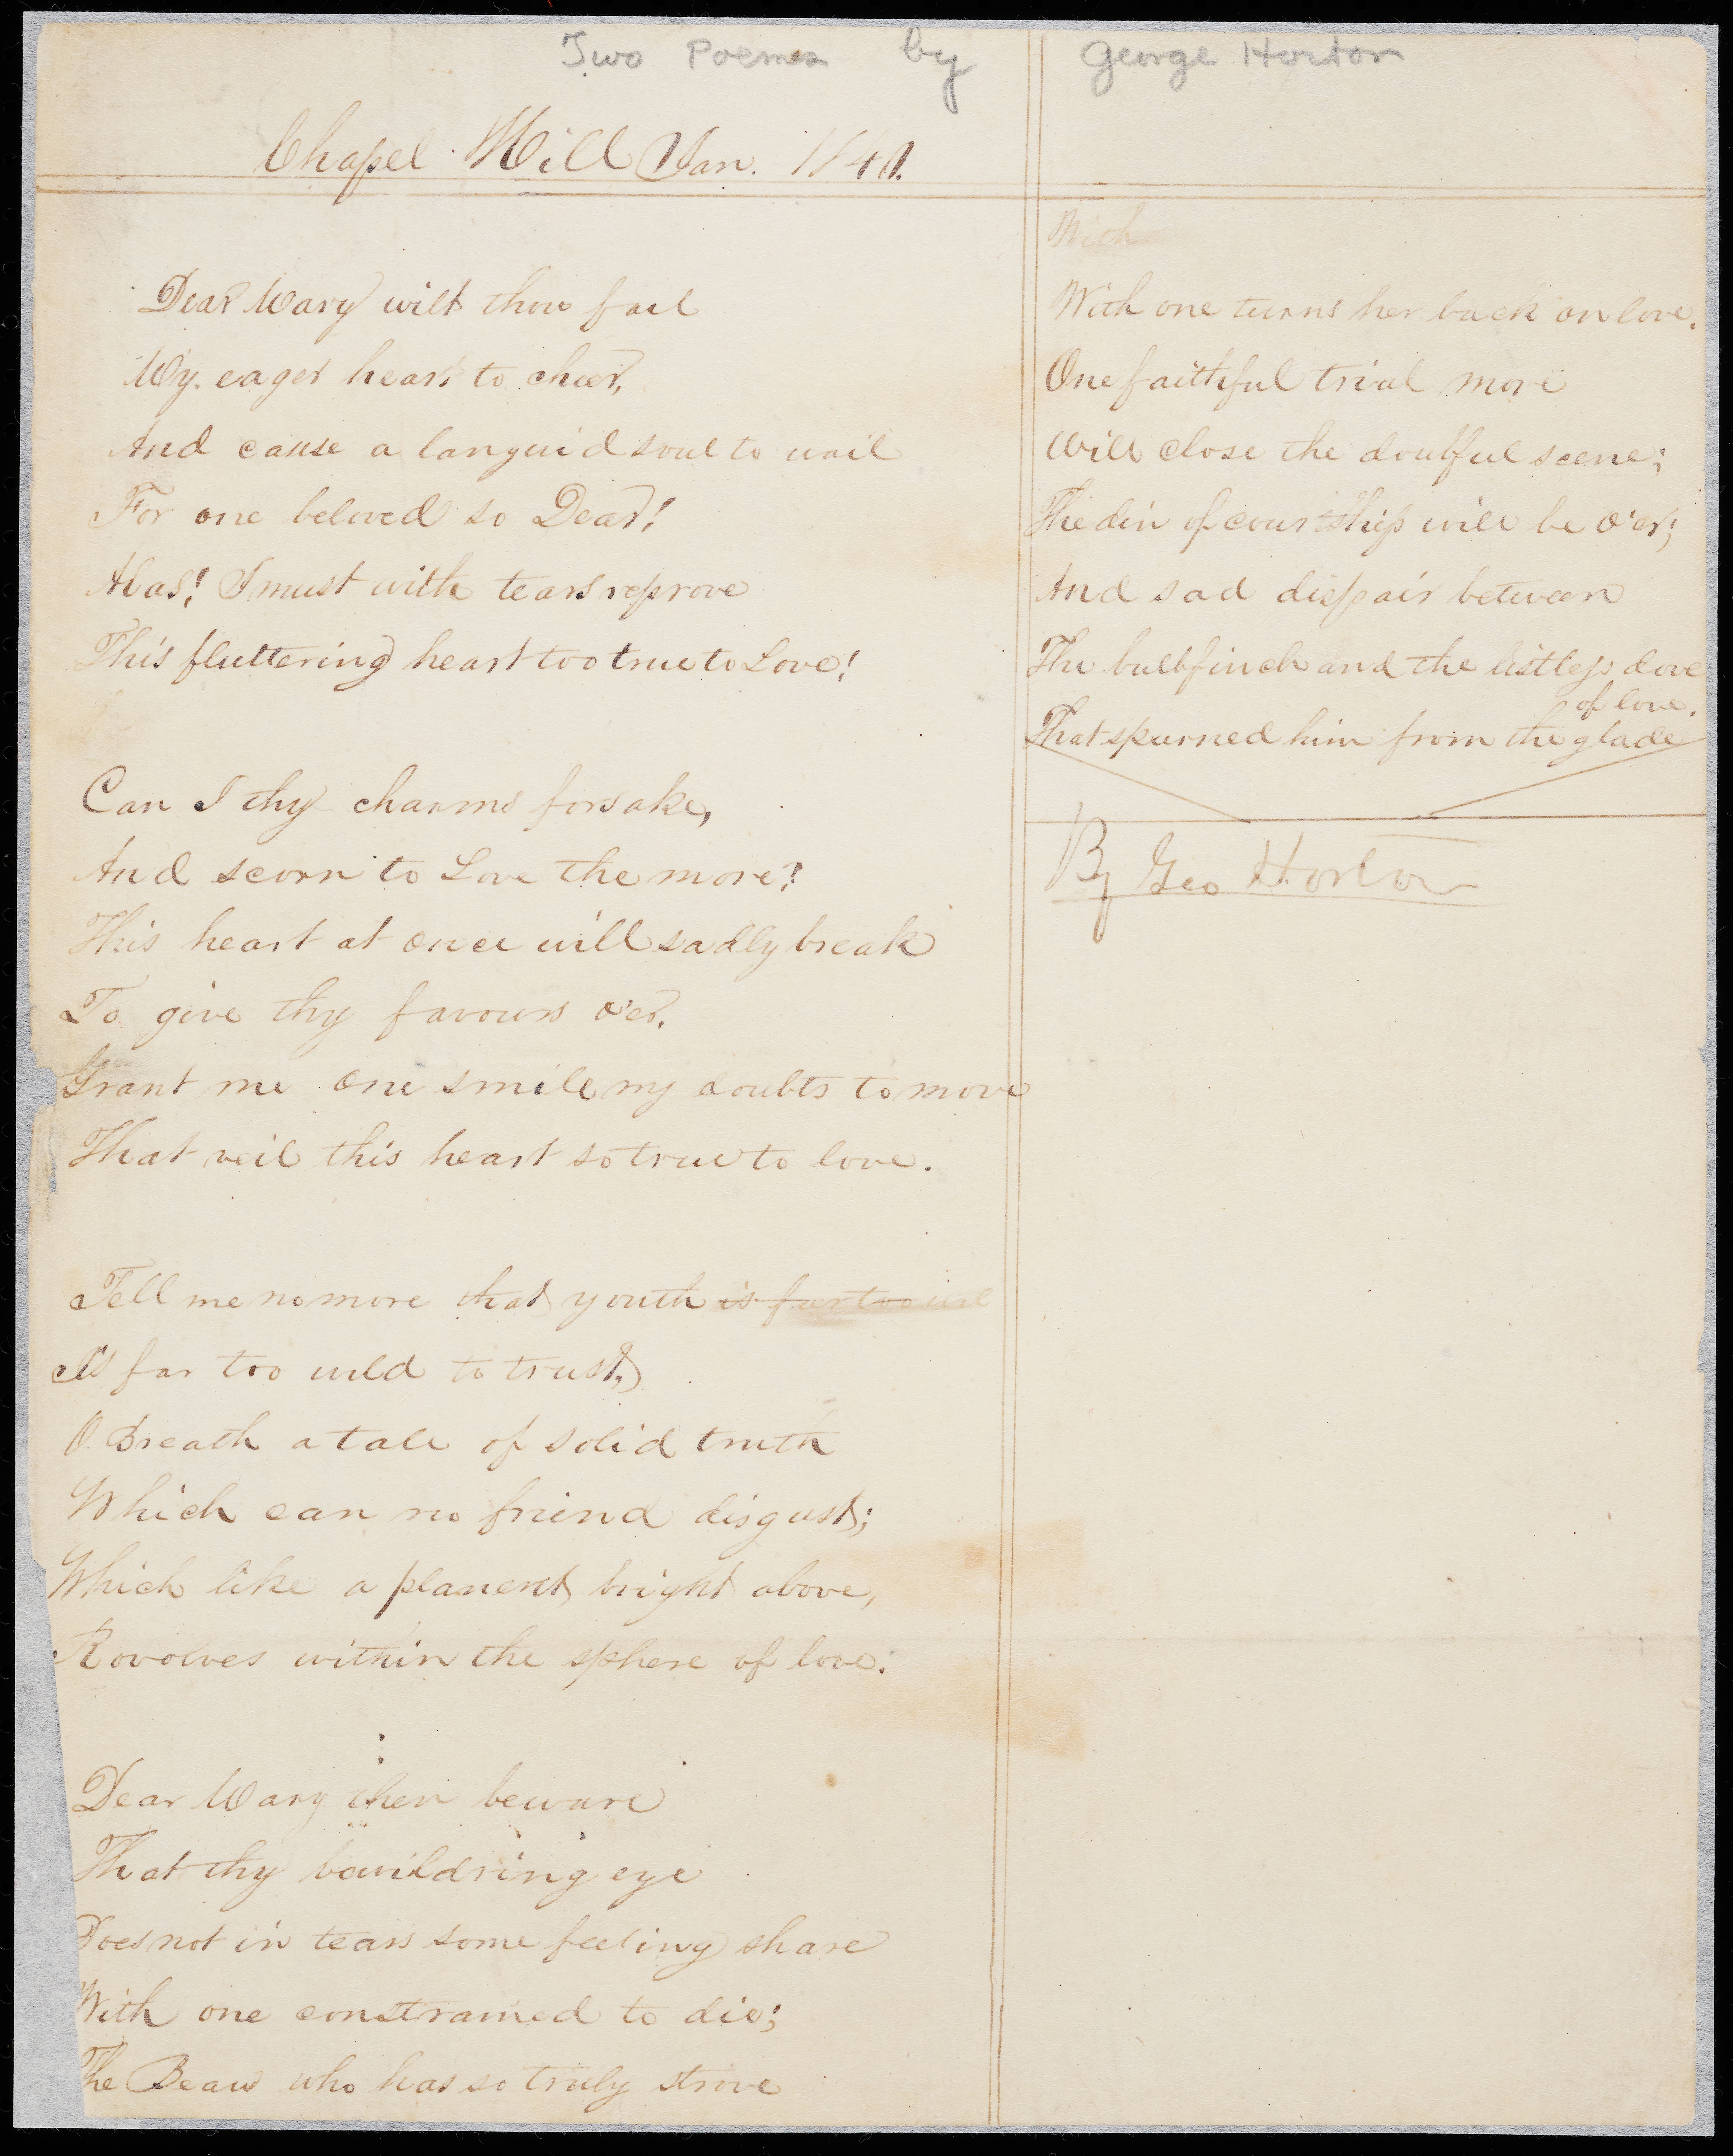 Two Poems by George Horton
Chapel Hill Jan. 1840.
Dear Mary wilt thou fail
My eager heart to cheer,
And cause a languid soul to wail
For one beloved so Dear!
Alas! I must with tears reprove
This fluttering heart too true to Love!
Can I thy charms forsake,
And scorn to Love the more?
This heart at once will sadly break
To give thy favours o'er.
Grant me one smile my doubts to move
That veil this heart so true to love.
Tell me no more that youth is far too wil
Is far too wild to trust,
O. Breath a tale of solid truth
Which can no friend disgust;
Which like a planent bright above,
Rovolves within the sphere of love:
Dear Mary then beware
That thy bewildring eye
Does not in tears some feeling share
With one constrained to die;
The Beau who has so truly strove
With
With one turns her back on love.
One faithful trial more
Will close the doubful scene;
The din of courtship will be o'er;
And sad dispair between
The bullfinch and the listless dove
of love.
That spurned him from the glade
By Geo Horton